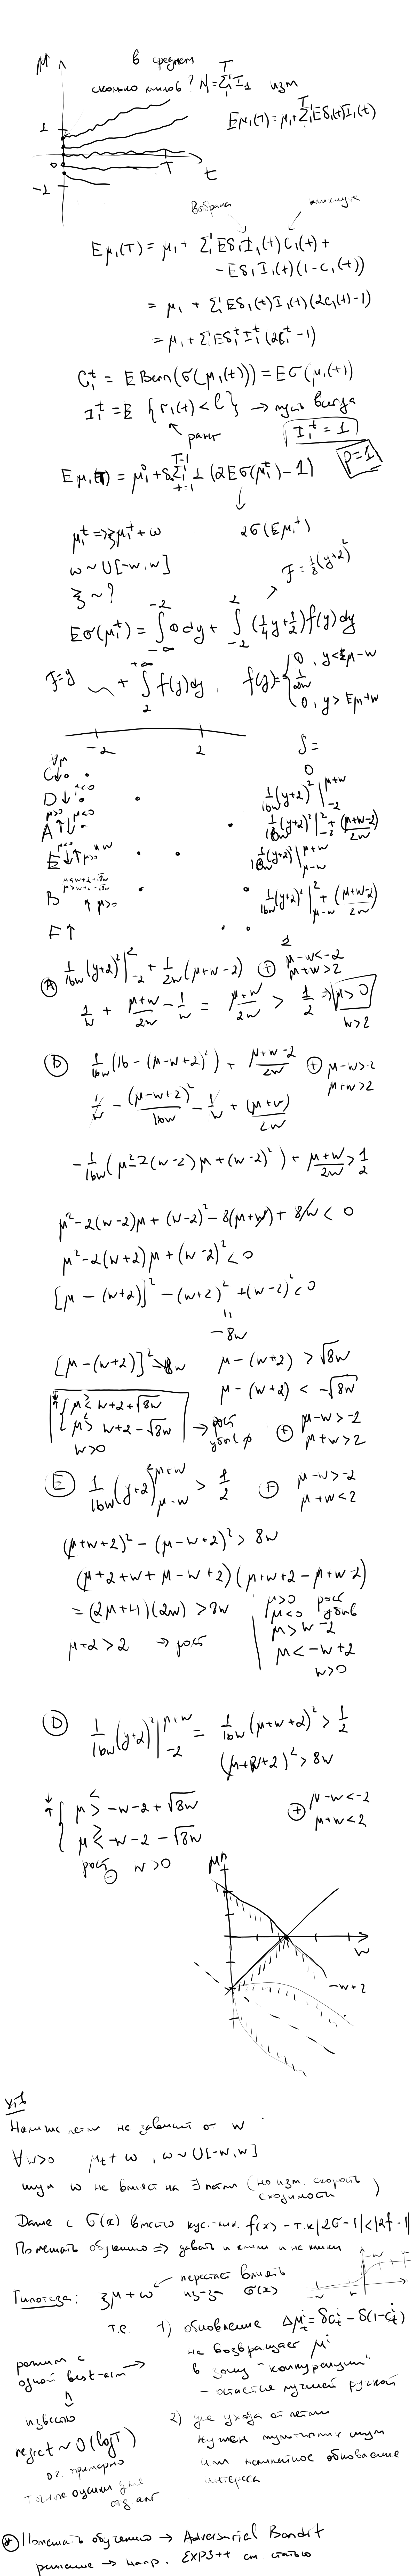 μ
в среднем
T
сколько кликов? N = Σ I₁ изм
1
Eμ₁(T) = μ₁ + Σ Eδ₁(t)I₁(t)
0
T
t
-1
выбрана
кликнута
Eμ₁(T) = μ₁ + Σ Eδ₁I₁(t)C₁(t) +
- Eδ₁I₁(t)(1-C₁(t))
= μ₁ + Σ Eδ₁(t)I₁(t)(2C₁(t)-1)
= μ₁ + Σ Eδ₁ᵗI₁ᵗ(2C₁ᵗ-1)
C₁ᵗ = E Bern(σ(μ₁(t))) = Eσ(μ₁(t))
I₁ᵗ = E {r₁(t) < l} → пусть всегда
ранг
I₁ᵗ = 1
p=1
Eμ₁(T) = μ₁⁰ + δ Σ 1 (2Eσ(μ₁ᵗ) - 1)
T-1
t=1
2σ(Eμ₁ᵗ)
μ₁ᵗ => ξμ₁ᵗ + w
w ~ U[-w,w]
F = 1/8 (y+2)²
ξ ~ ?
Eσ(μ₁ᵗ) = ∫ 0 dy + ∫ (1/4 y + 1/2) f(y) dy
-2
-∞
2
-2
F=y
+ ∫ f(y)dy,
+∞
2
f(y) = { 0, y < Eμ-w
1/2w
0, y > Eμ+w
-2
2
∫ =
∀μ
C↓
0
D↓ μ<0
1/16w (y+2)² |₋₂^μ+w
μ>0 μ<0
A ↑↓
1/16w (y+2)² |₋₂² + (μ+w-2)/2w
E ↓↑ μ>0
1/16w (y+2)² |_μ-w^μ+w
μ<w+2-√8w
μ>w+2-√8w
B ↑ μ>0
1/16w (y+2)² |_μ-w² + (μ+w-2)/2w
F↑
1
Ⓐ 1/16w (y+2)² |₋₂² + 1/2w (μ+w-2) ⊕ μ-w<-2
μ+w>2
1/w + (μ+w)/2w - 1/w = (μ+w)/2w > 1/2 ⇒ μ>0
w>2
Ⓑ 1/16w (16 - (μ-w+2)²) + (μ+w-2)/2w ⊕ μ-w>-2
μ+w>2
1/w - (μ-w+2)²/16w - 1/w + (μ+w)/2w
-1/16w (μ²-2(w-2)μ+(w-2)²) + (μ+w)/2w > 1/2
μ²-2(w-2)μ+(w-2)²-8(μ+w)+8w < 0
μ²-2(w+2)μ+(w-2)²<0
[μ-(w+2)]²-(w+2)²+(w-2)²<0
"
-8w
[μ-(w+2)]²>8w μ-(w+2) > √8w
μ-(w+2) < -√8w
μ ≷ w+2+√8w
μ ≷ w+2-√8w → рост
w>0 убыв
⊕ μ-w>-2
μ+w>2
Ⓔ 1/16w (y+2)² |_μ-w^μ+w > 1/2 ⊕ μ-w>-2
μ+w<2
(μ+w+2)²-(μ-w+2)²>8w
(μ+2+w+μ-w+2)(μ+w+2-μ+w-2)
= (2μ+4)(2w) > 8w
μ+2>2 → рост
μ>0 рост
μ<0 убыв
μ>w-2
μ<-w+2
w>0
Ⓓ 1/16w (y+2)² |₋₂^μ+w = 1/16w (μ+w+2)² > 1/2
(μ+w+2)²>8w
μ ≷ -w-2+√8w
μ ≷ -w-2-√8w
рост w>0
⊕ μ-w<-2
μ+w<2
μ
w
-w+2
Утв
Наличие петли не зависит от w
∀w>0 μt + w, w~U[-w,w]
шум w не влияет на ∃ петли (но изм. скорость сходимости)
Далее с σ(x) вместо кус.-лин. f(x) - т.к |2σ-1|<|2f-1|
Помешать обучению => давать и клики и не клики
Гипотеза: ξμ+w перестает влиять
из-за σ(x)
-w
w
т.е. 1) обновление Δμᵢᵗ = δcᵢᵗ - δ(1-cᵢᵗ)
не возвращает μⁱ
в зону "конкуренции"
- остается лучшей ручкой
режим с
одной best-arm
известно
regret ~ O(log T)
ог. примерно
точные оценки для
отд алг
2) для ухода от петли
нужен мультипл. шум
или нелинейное обновление
интереса
⊛ Помешать обучению → Adversarial Bandit
решение → напр. EXP3++ см статью